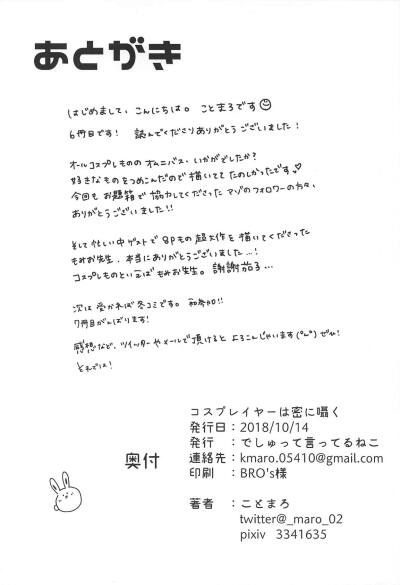 あとがき
はじめまして、こんにちは。ことまろです
6冊目です! 読んでくださりありがとうございました!
オールコスプレもののオムニバス、いかがでしたか?
好きなものをつめこんだので描いててたのしかったです♥
今回もお題箱で協力してくださったマゾのフォロワーの方々、
ありがとうございました!!
そして忙しい中ゲストで8Pもの超大作を描いてくださった
もみお先生、本当にありがとうございました…!
コスプレものといえばもみお先生。謝謝茄子…
次は受かれば冬コミです。和参加!!
7冊目がんばります!
感想など、ツイッターやメールで頂けるとよろこんじゃいます(°∀°)ぜひ!
それでは!
コスプレイヤーは密に囁く
奥付
発行日:2018/10/14
発行 :でしゅって言ってるねこ
連絡先:kmaro.05410@gmail.com
印刷 :BRO's様
著者 :ことまろ
twitter@_maro_02
pixiv 3341635